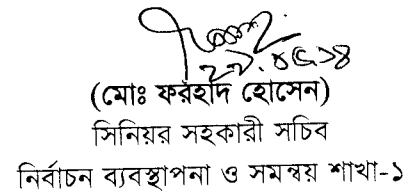 (মোঃ ফরহাদ হোসেন)
সিনিয়র সহকারী সচিব
নির্বাচন ব্যবস্থাপনা ও সমন্বয় শাখা-১